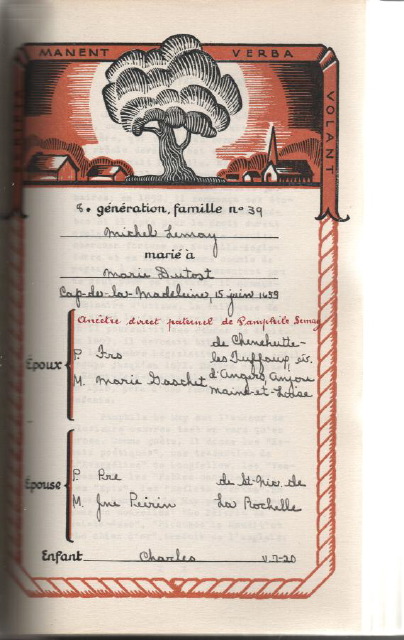 MANENT VERBA
VOLANT
8e génération, famille no 39
Michel Lemay
marié à
Marie Dutost
Cap-de-la-Madeleine, 15 juin 1659
Ancêtre direct paternel de Pamphile Lemay
Époux
P. Frs
M. Marie Gaschet
de Chenehutte-
les-Tuffaux, év.
d'Angers, Anjou
Maine-et-Loise
Épouse
P. Pre
M. Jne Péirin
de St-Nic. de
La Rochelle
Enfant Charles V-7-20